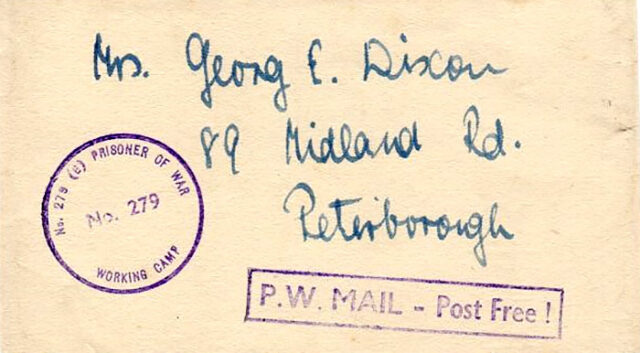 Mrs. Georg E. Dixon
89 Midland Rd.
Peterborough
No. 279 (e) PRISONER OF WAR
No. 279
WORKING CAMP
P.W. MAIL - Post Free!